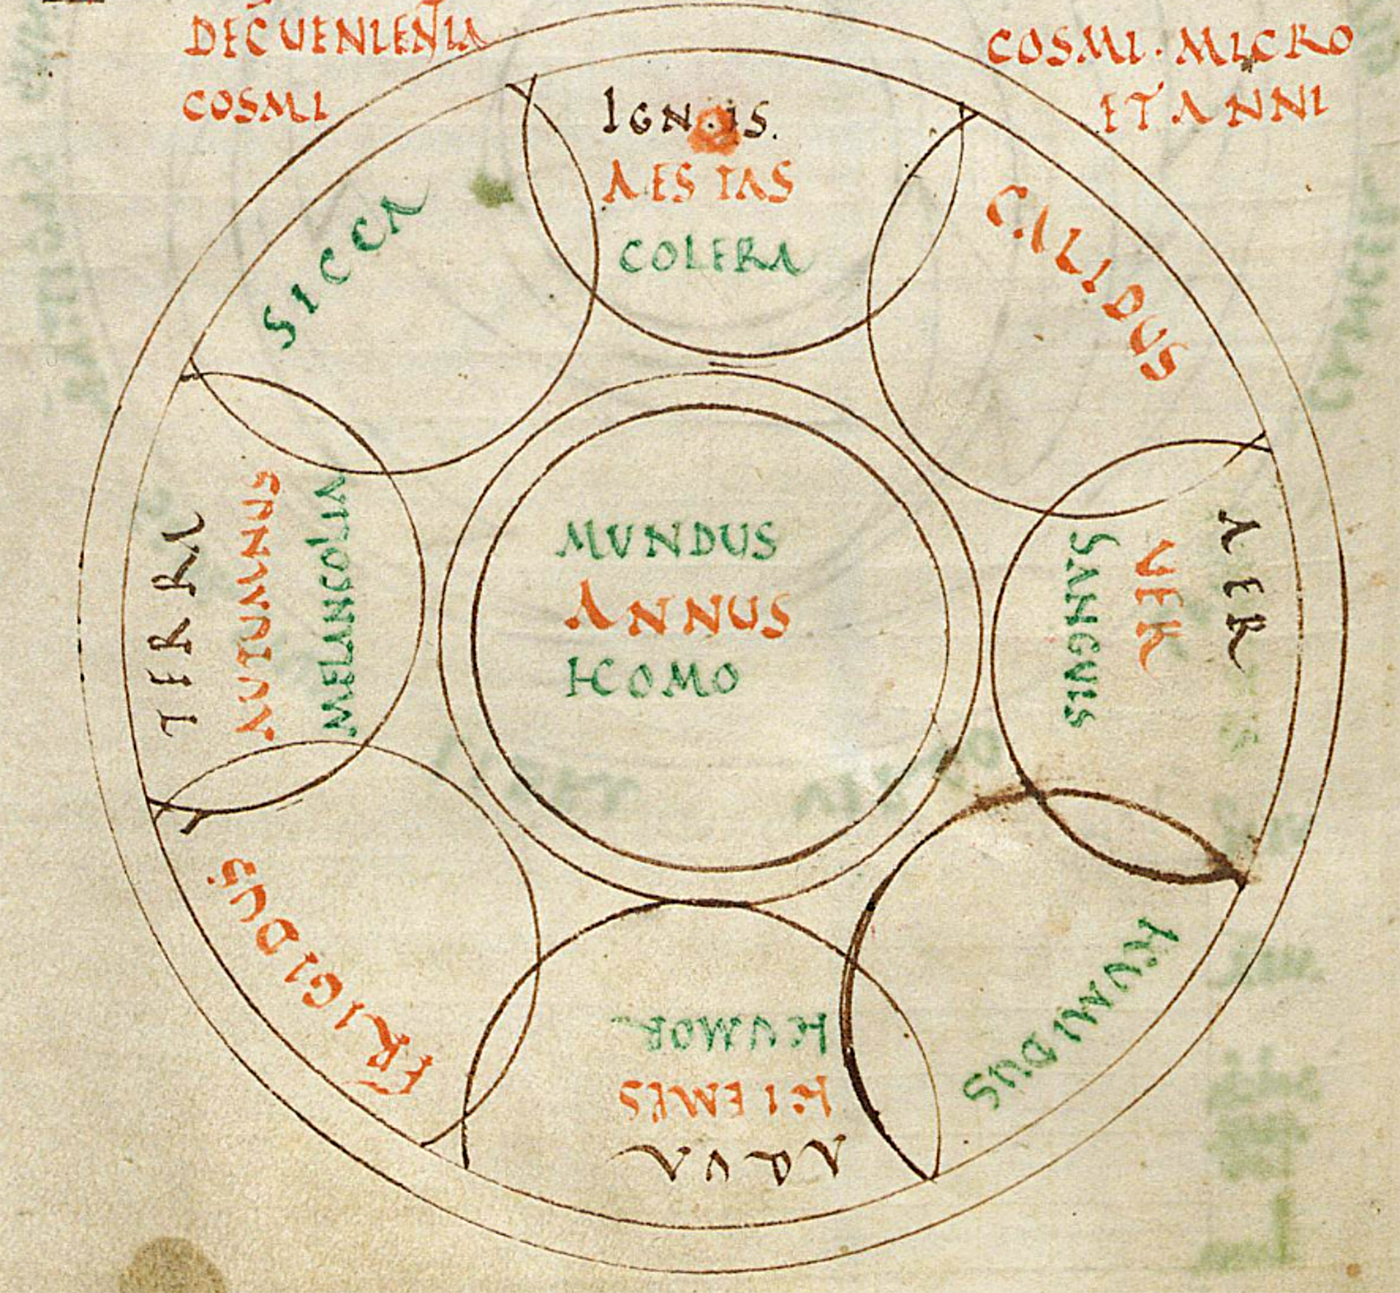 DEC̄UENIEN̄TIA
COSMI
COSMI·MICRO
ET ANNI
IGNIS.
AESTAS
COLERA
CALIDUS
AER
UER
SANGUIS
HUMIDUS
HUMOR
HIEMES
AQVA
FRIGIDUS
TERRA
AUTUMNUS
MELANCOLIA
SICCA
MUNDUS
ANNUS
HOMO